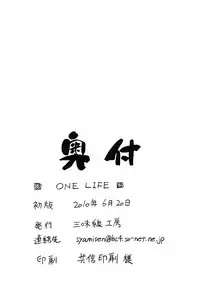 奥付
ONE LIFE
初版 2010年6月20日
発行 三味線工房
連絡先 syamisen@bc4.so-net.ne.jp
印刷 共信印刷様